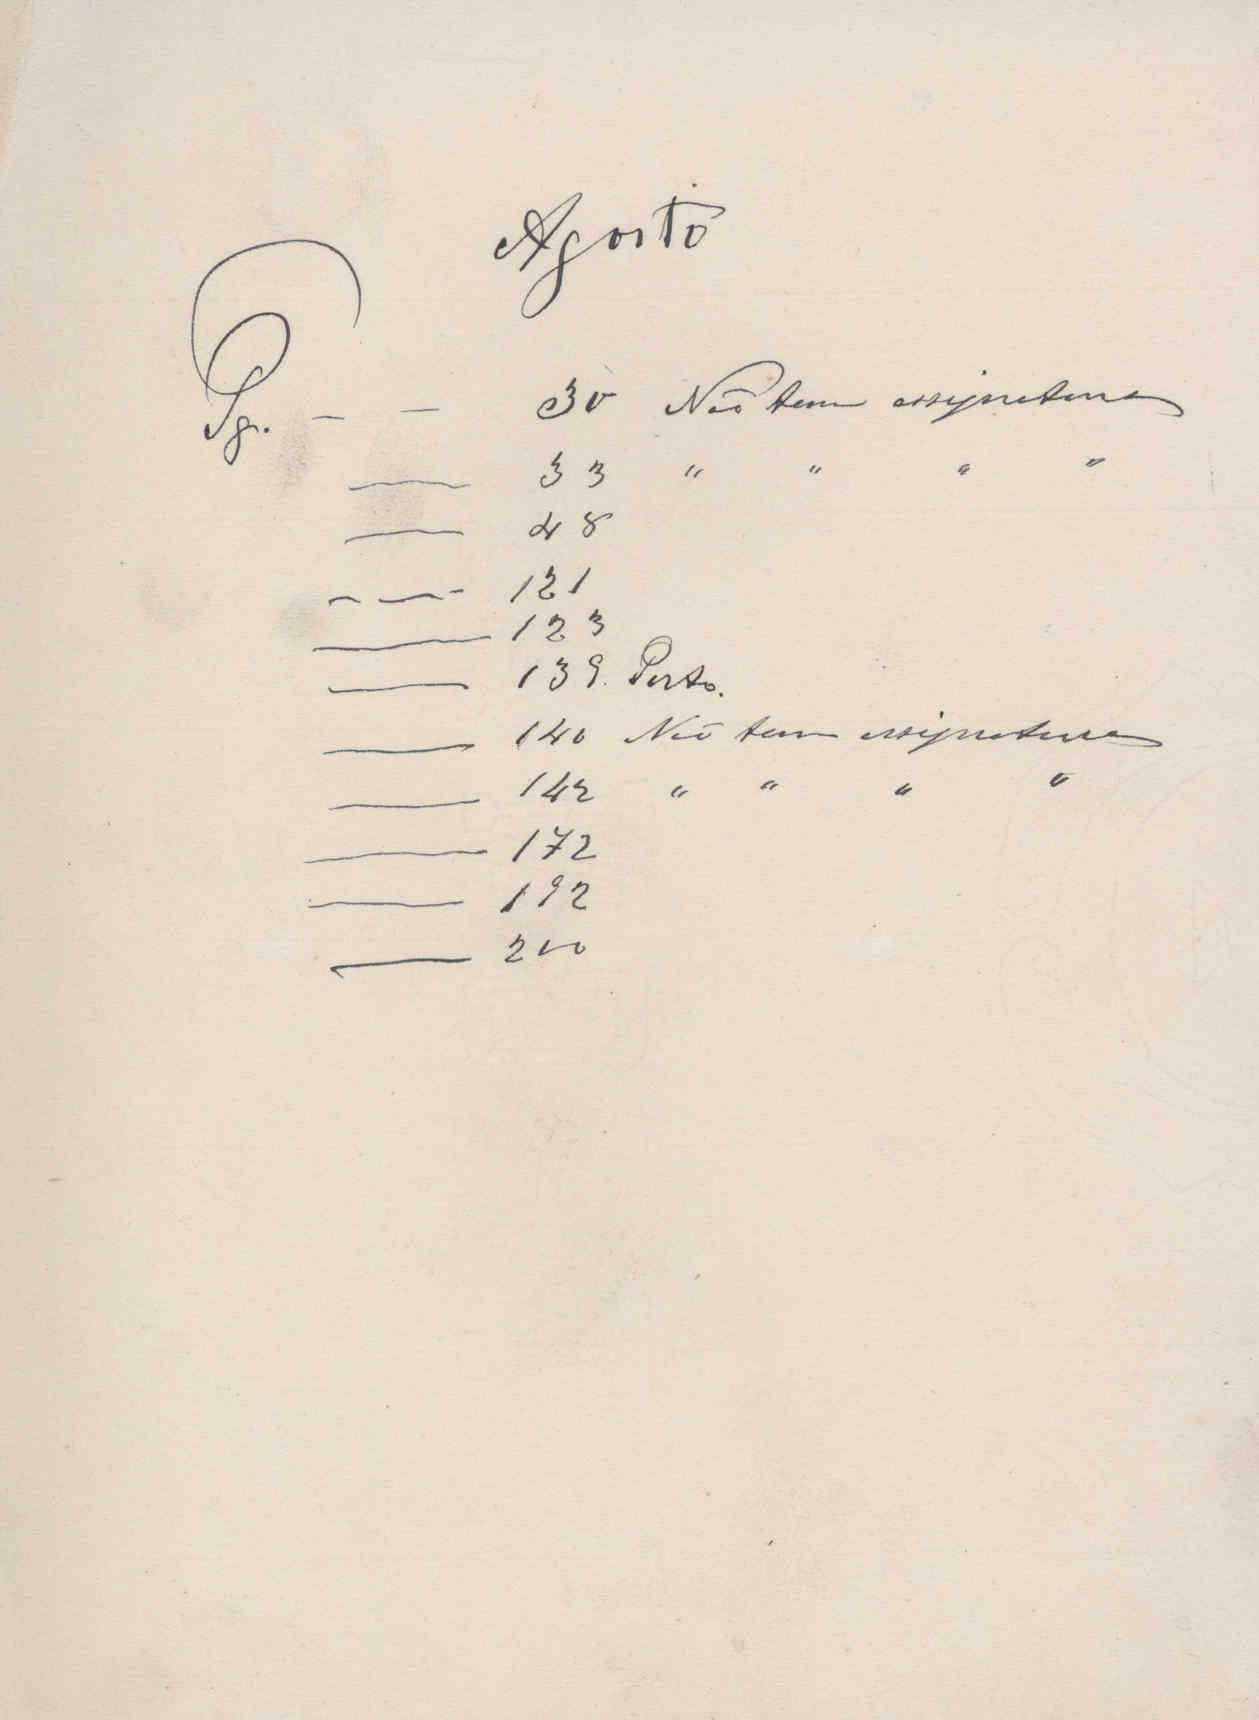 Agosto
Pg. — — 30 Não tem assignatura
— 33 " " " "
— 48
— — 121
— 123
— 139. Porto.
— 140 Não tem assignatura
— 142 " " " "
— 172
— 192
— 200